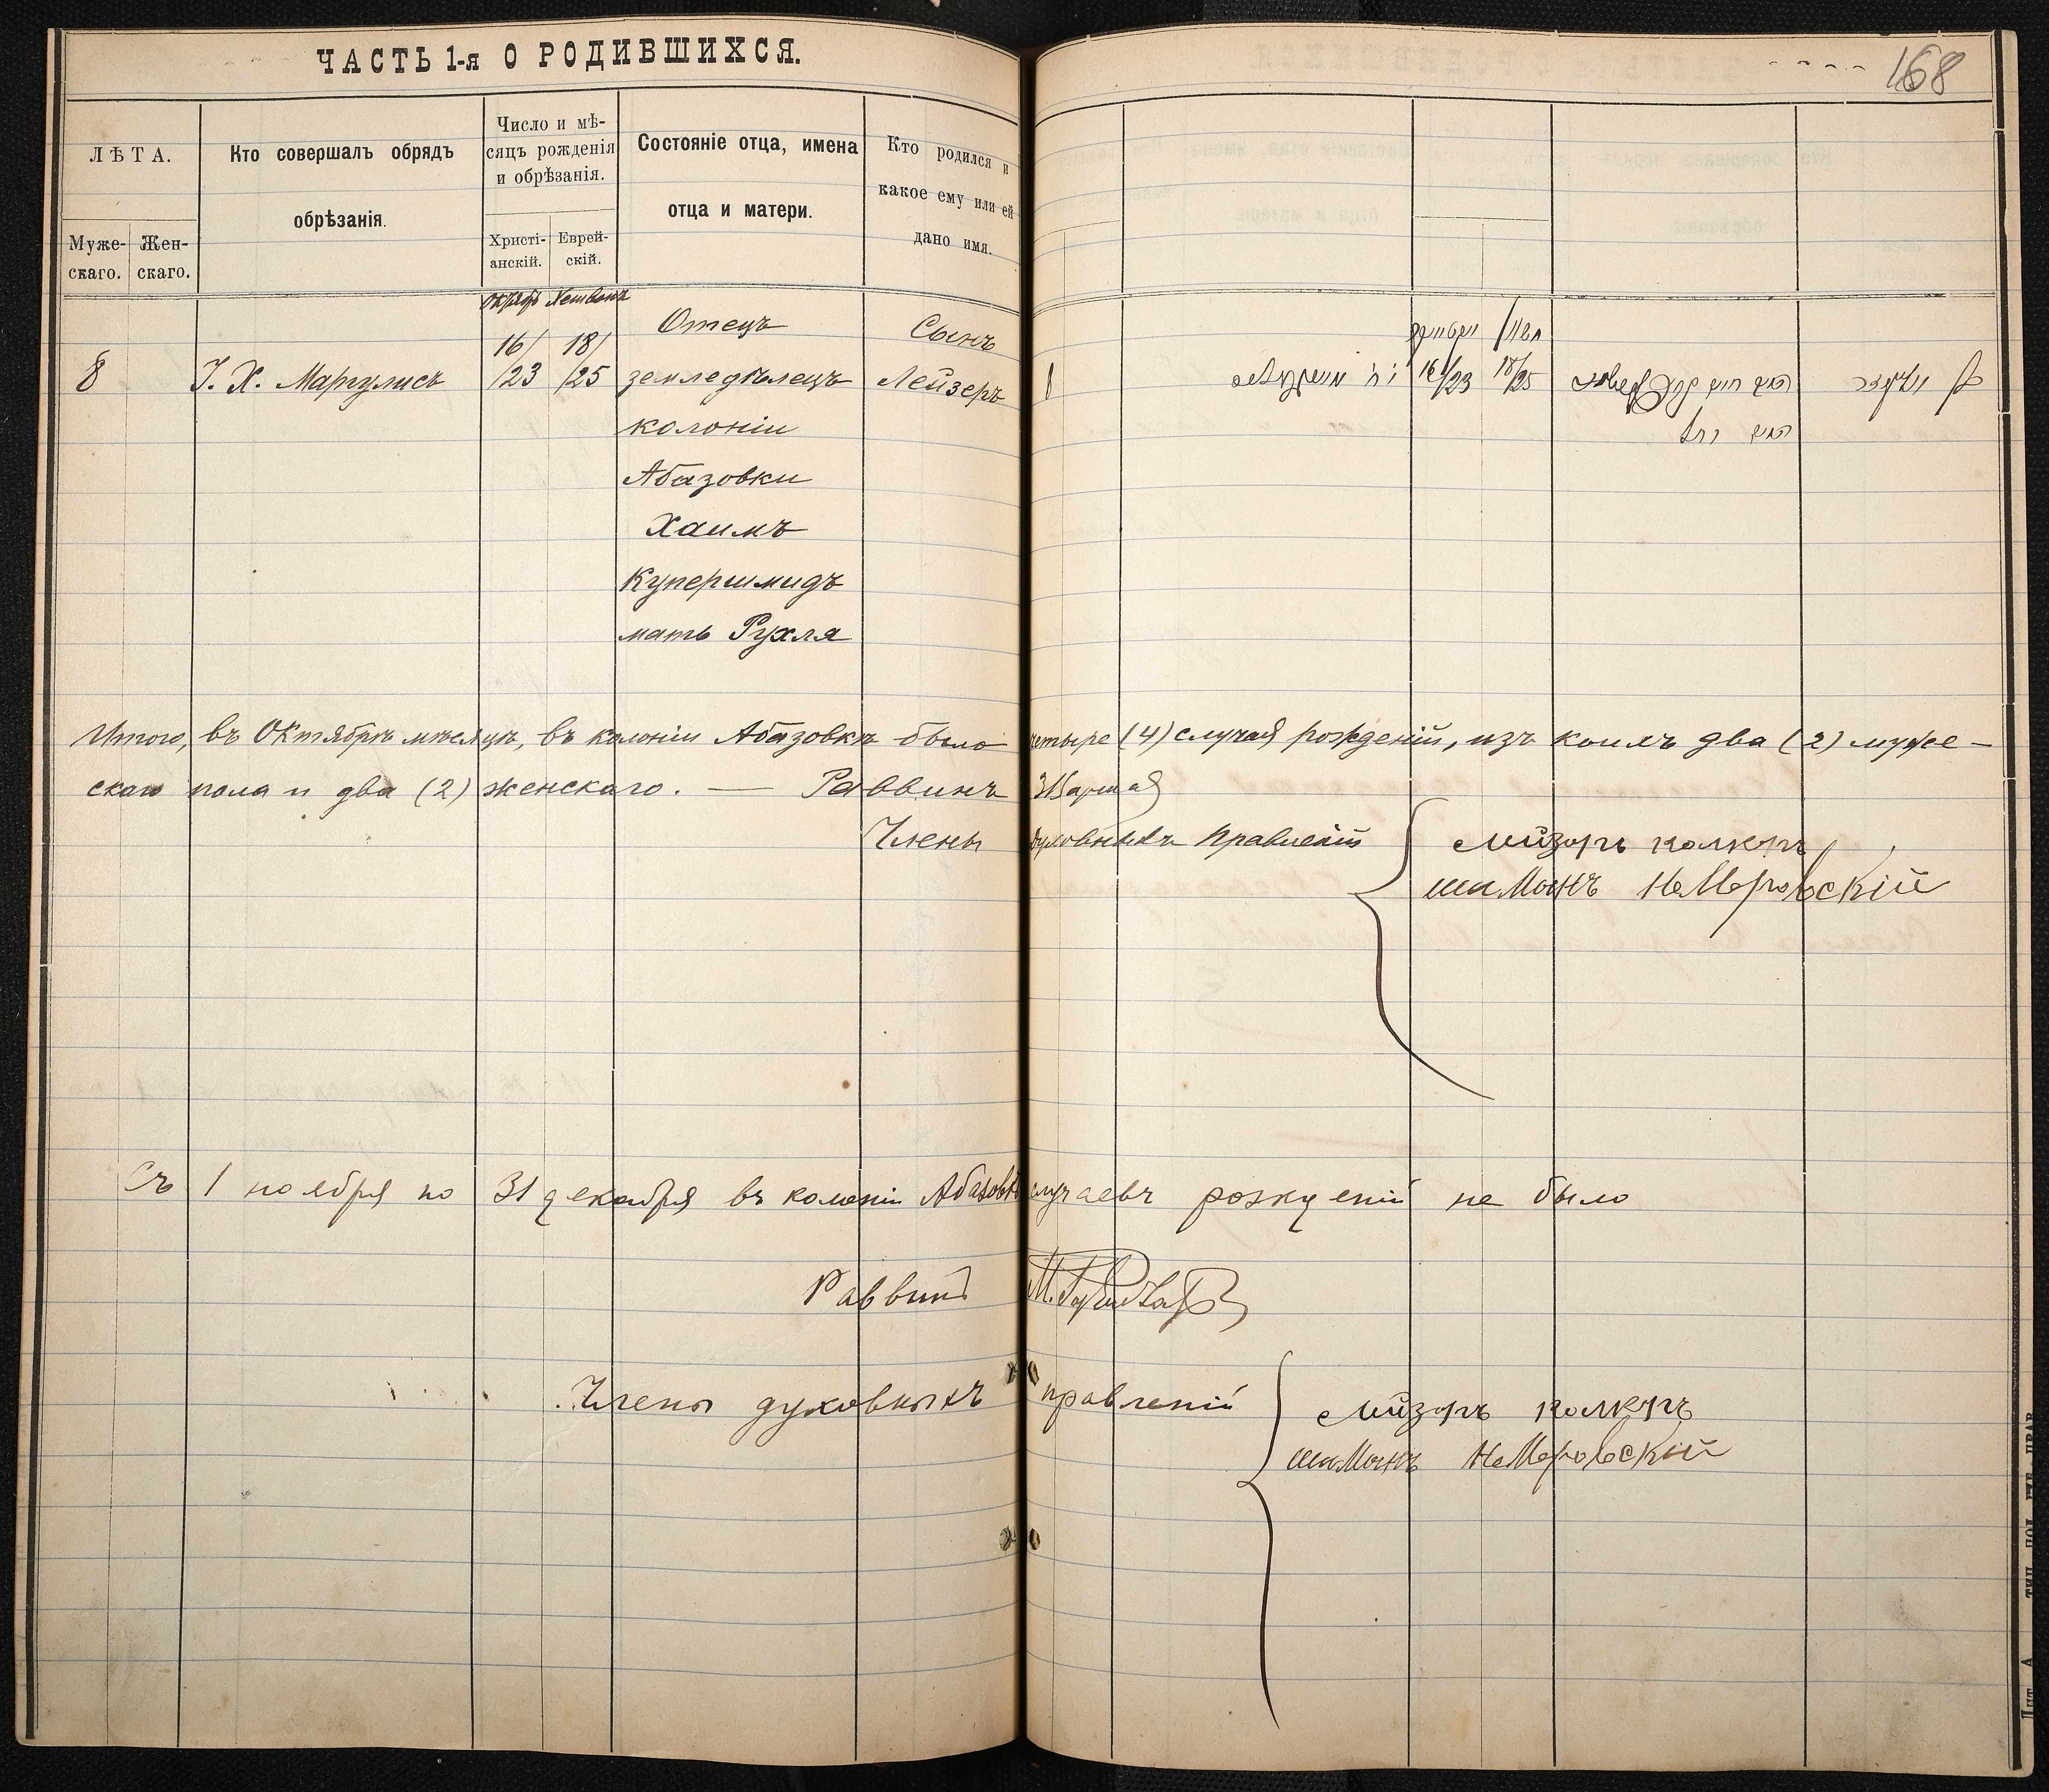 ЧАСТЬ 1-я О РОДИВШИХСЯ.
168
ЛѢТА.
Муже-
скаго.
Жен-
скаго.
Кто совершалъ обрядъ
обрѣзанія.
Число и мѣ-
сяцъ рожденія
и обрѣзанія.
Христі-
анскій.
Еврей-
скій.
Состояніе отца, имена
отца и матери.
Кто родился и
какое ему или ей
дано имя.
8
І. Х. Маргулисъ
16/
/23
18/
/25
Отецъ
земледѣлецъ
колоніи
Абазовки
Хаимъ
Купершмидъ
мать Рухля
Сынъ
Лейзеръ
16/23
18/25
Итого, въ Октябрѣ мѣсяцѣ, въ колоніи Абазовкѣ было четыре (4) случая рожденій, изъ коихъ два (2) муже-
скаго пола и два (2) женскаго. — Раввинъ
Члены духовныхъ правленій
Лейзоръ Колкеръ
Немеровскій
Съ 1 ноября по 31 декабря въ колоніи Абазовкѣ случаевъ рожденій не было
Раввинъ
Члены духовныхъ правленій
Лейзоръ Колкеръ
Немеровскій